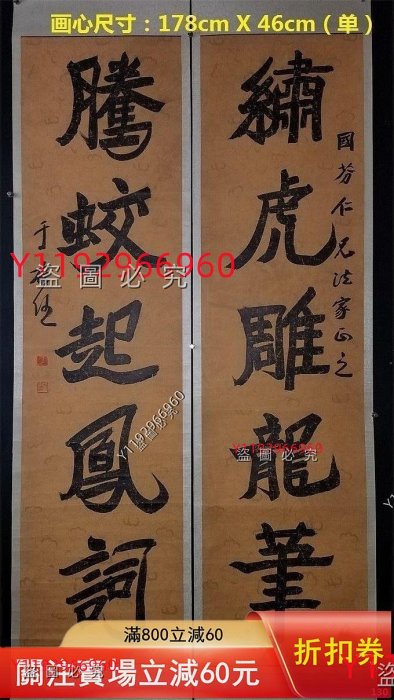 画心尺寸：178cm X 46cm（单）
國芬仁兄法家正之
繡虎雕龍筆
騰蛟起鳳詞
于右任
Y1192966960
盜圖必究
Y1192966960
盜圖必究
Y1192966960
盜圖必究
滿800立減60
關注賣場立減60元
折扣券